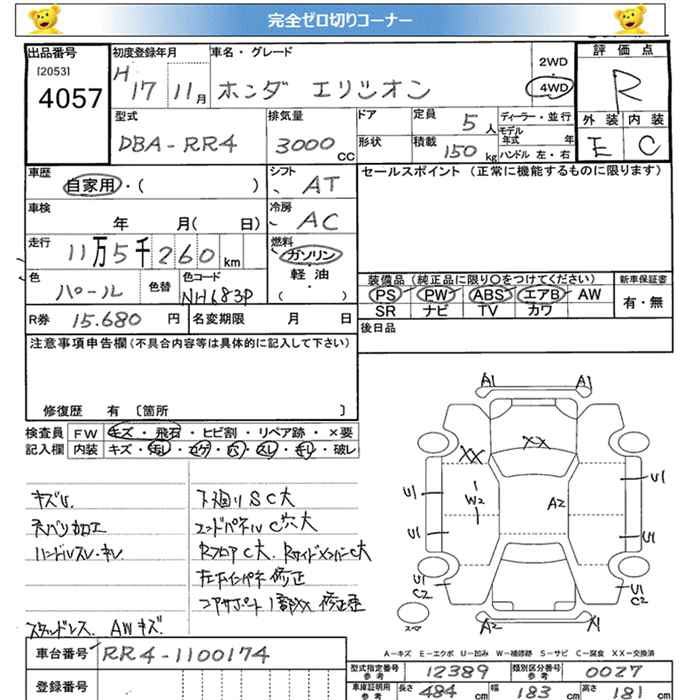 完全ゼロ切りコーナー
出品番号 初度登録年月 車名・グレード 2WD 評価点
[2053] H 17 11月 ホンダ エリシオン 4WD R
4057
型式 排気量 ドア 定員 5人 ディーラー・並行 外装 内装
DBA-RR4 3000CC 形状 積載 150kg モデル年式 年 E C
ハンドル 左・右
車歴 シフト セールスポイント(正常に機能するものに限ります)
自家用・( ) AT
車検 冷房
年 月( 日) AC
走行 燃料
11万5千260km ガソリン
軽油
( )
色 パール 色替 色コード NH683P
装備品(純正品に限り〇をつけてください) 新車保証書
PS PW ABS エアB AW 有・無
SR ナビ TV カワ
R券 15.680円 名変期限 月 日
後日品
注意事項申告欄(不具合内容等は具体的に記入して下さい)
修復歴 有 〔箇所 〕
検査員 FW キズ・飛石・ヒビ割・リペア跡・×要
記入欄 内装 キズ・汚レ・コゲ・穴・スレ・キレ・破レ
A1 A1
XX
XX
U1 U1
W2 A2
U1 U1
U1 U1
C2 C2
スペア
A2 X1
キズU. 下廻りSC大
天ベリ加工 エンドパネルC穴大
ハンドルスレ・キレ RフロアC大 RサイドメンバーC大
左右インパネ修正
コアサポート1部XX 修正歴
スタッドレス. AWキズ.
A-キズ E-エクボ U-凹み W-補修跡 S-サビ C-腐食 XX-交換済
車台番号 RR4-1100174
登録番号
型式指定番号 参考 12389 類別区分番号 参考 0027
車庫証明用 参考 長さ 484cm 幅 183cm 高さ 181cm